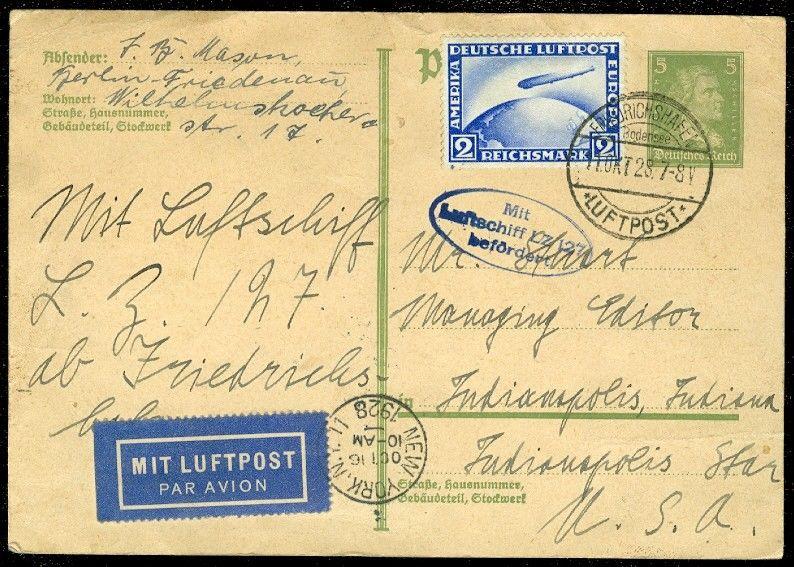 Absender: F. B. Mason,
Berlin-Friedenau,
Wohnort: Wilhelmshöher
Straße, Hausnummer,
Gebäudeteil, Stockwerk
str. 17.
Mit Luftschiff
L. Z. 127.
ab Friedrichs-
MIT LUFTPOST
PAR AVION
P
DEUTSCHE LUFTPOST
AMERIKA
EUROPA
2 REICHSMARK 2
5 5
Deutsches Reich
FRIEDRICHSHAFEN
Bodensee
11.OKT 28.7-8V
*LUFTPOST*
Mit
Luftschiff LZ 127
befördert
Mr. Stuart
Managing Editor
in Indianapolis, Indiana
Indianapolis Star
Straße, Hausnummer,
Gebäudeteil, Stockwerk
U. S. A.
NEW YORK, N.Y. 11
OCT 16
10-AM
1928